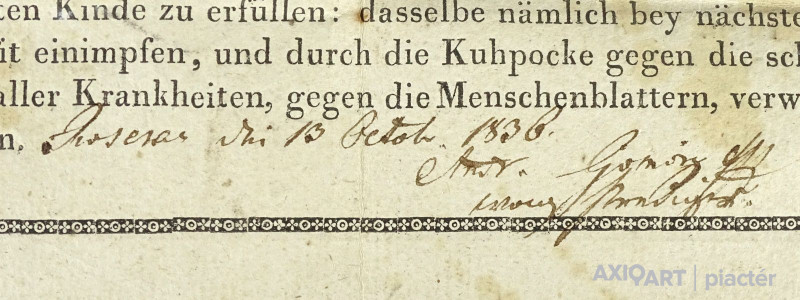 ten Kinde zu erfüllen: dasselbe nämlich bey nächste
it einimpfen, und durch die Kuhpocke gegen die sch
aller Krankheiten, gegen die Menschenblattern, verw
n. 13 Octob. 1836.
Andr.
AXIOART | piactér